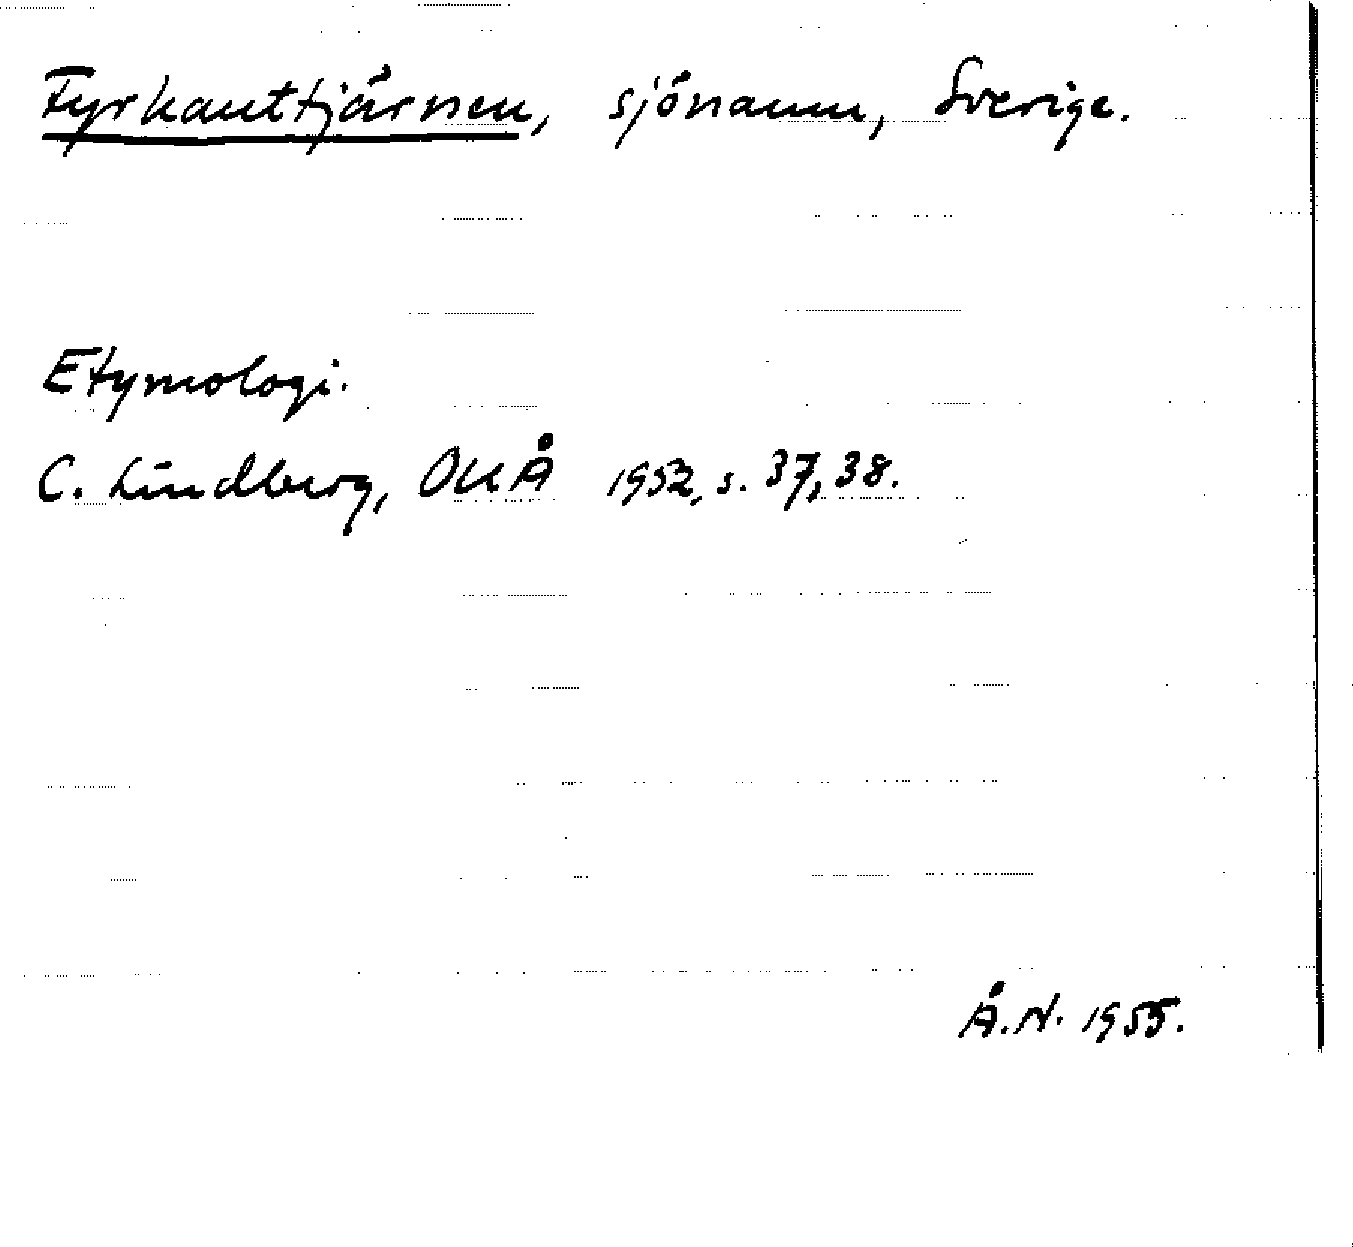 Fyrkanttjärnen, sjönamn, Sverige.
Etymologi.
C. Lindberg, OUÅ 1952, s. 37, 38.
Å.N. 1955.